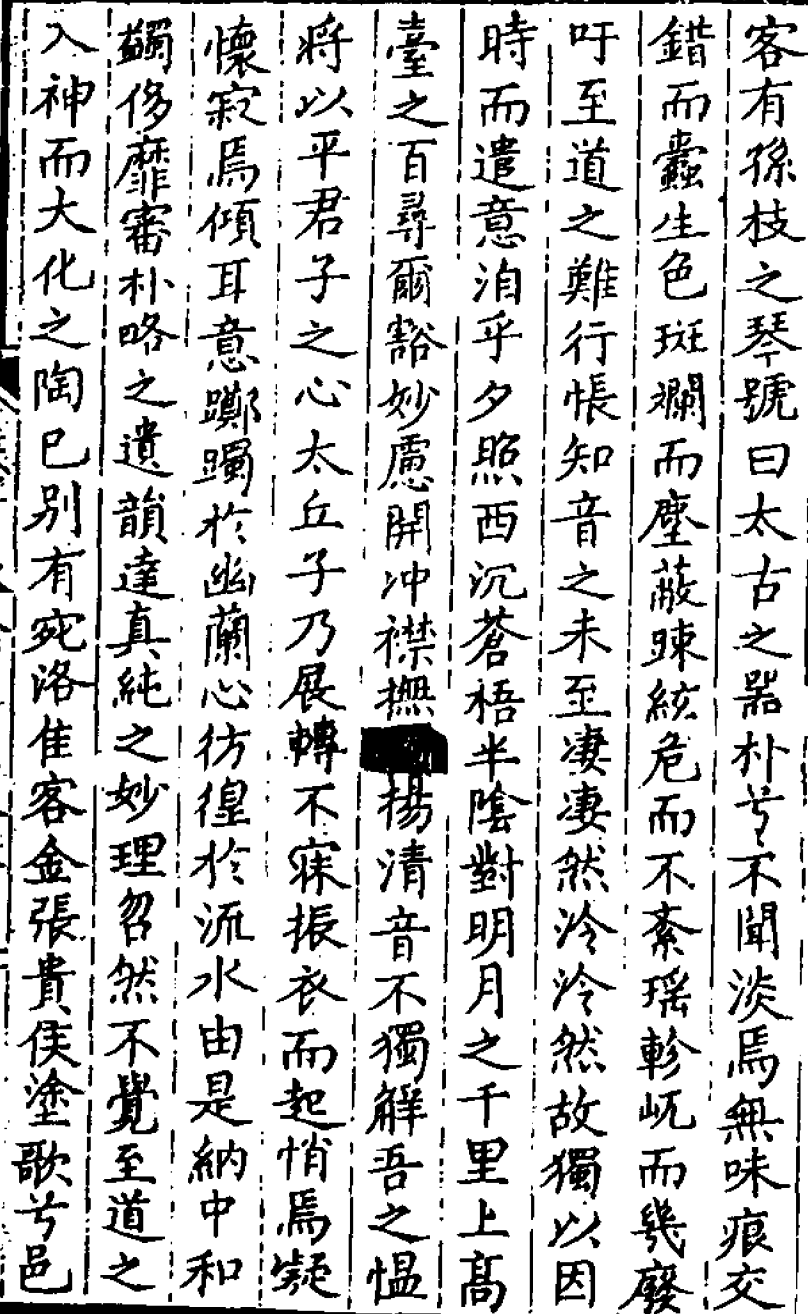 客有孫枝之琴號曰太古之器朴兮不聞淡焉無味痕交
錯而蠹生色斑斕而塵蔽踈絃危而不紊瑶軫屼而幾廢
吁至道之難行悵知音之未至凄凄然泠泠然故獨以因
時而遣意洎乎夕照西沉蒼梧半陰對明月之千里上高
臺之百尋爾豁妙慮開冲襟撫揚清音不獨解吾之愠
将以平君子之心太丘子乃展轉不寐振衣而起悄焉凝
懷寂焉傾耳意躑躅於幽蘭心彷徨於流水由是納中和
蠲侈靡審朴略之遺韻達真純之妙理忽然不覺至道之
入神而大化之陶巳别有宛洛佳客金張貴侯塗歌兮邑